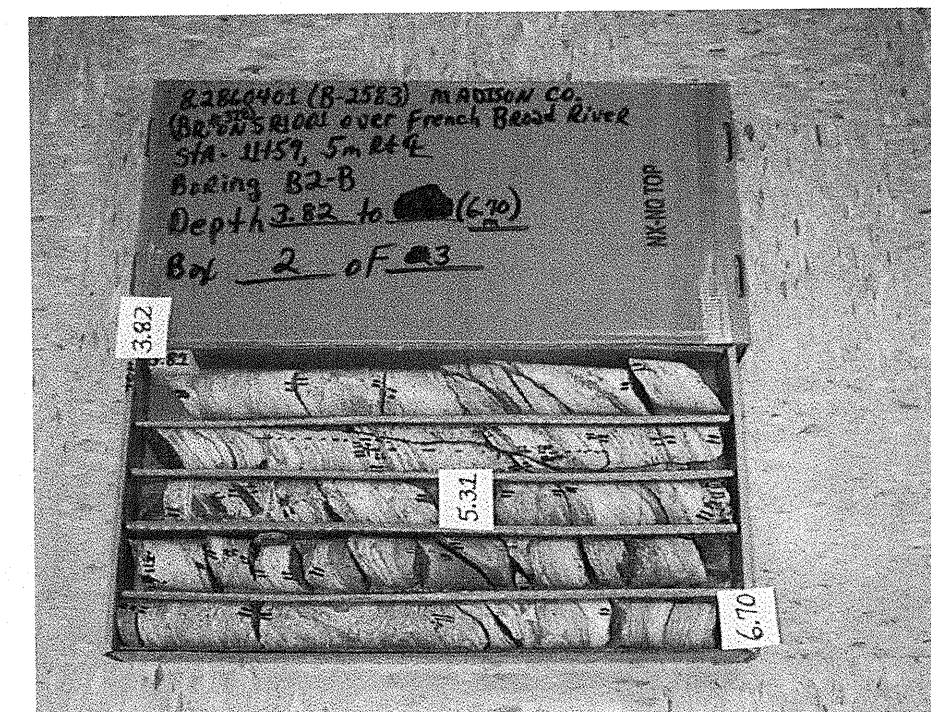 8.2860401 (B-2583) MADISON CO.
(BR. ON SR1001 over French Broad River
StA. 11+59, 5m Rt ℄
Boring B2-B
Depth 3.82 to (6.70)
Box 2 of 3
NX-NQ TOP
3.82
3.82
5.31
6.70